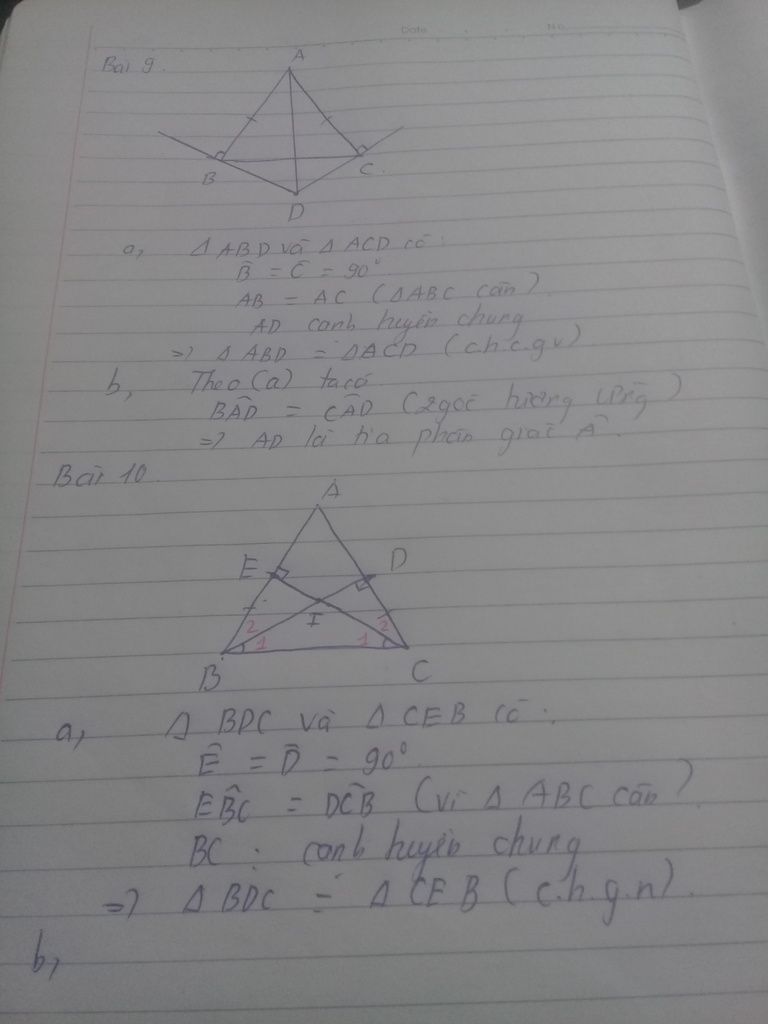 Date No.
Bài 9.
A
B
C.
D
a, Δ ABD và Δ ACD có:
B̂ = Ĉ = 90°
AB = AC (ΔABC cân)
AD cạnh huyền chung
=> Δ ABD = ΔACD (c.h.c.g.v)
b, Theo (a) ta có
BÂD = CÂD (2 góc tương ứng)
=> AD là tia phân giác Â.
Bài 10
A
E
D
I
2
2
1
1
B
C
a, Δ BDC và Δ CEB có:
Ê = D̂ = 90°
EB̂C = DĈB (vì Δ ABC cân)
BC : cạnh huyền chung
=> Δ BDC = Δ CEB (c.h.g.n).
b,